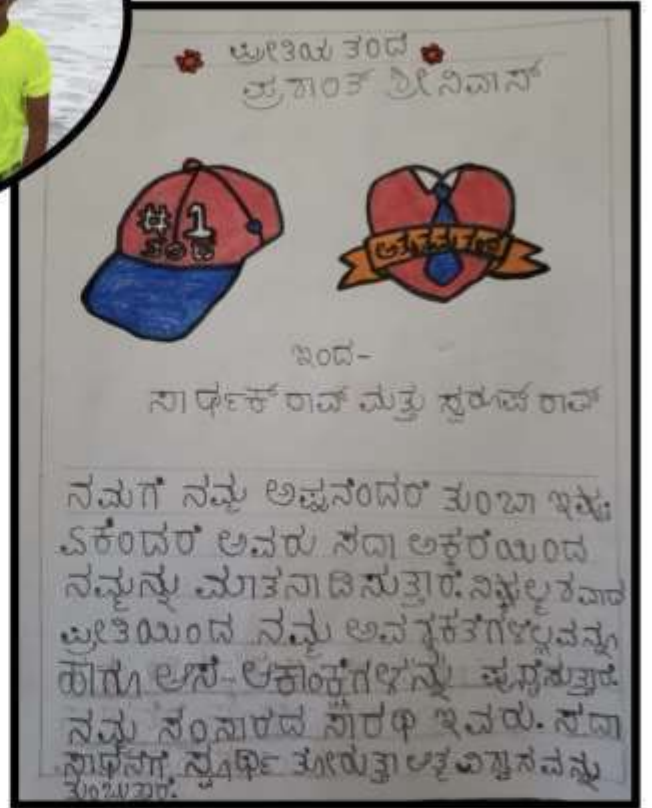 ಪ್ರೀತಿಯ ತಂದೆ
ಪ್ರಶಾಂತ್ ಶ್ರೀನಿವಾಸ್
#1
ತಂದೆ
ಅತ್ಯುತ್ತಮ ತಂದೆ
ಇಂದ-
ಸಾರ್ಥಕ್ ರಾವ್ ಮತ್ತು ಸ್ವರೂಪ್ ರಾವ್
ನಮಗೆ ನಮ್ಮ ಅಪ್ಪನೆಂದರೆ ತುಂಬಾ ಇಷ್ಟ
ಏಕೆಂದರೆ ಅವರು ಸದಾ ಅಕ್ಕರೆಯಿಂದ
ನಮ್ಮನ್ನು ಮಾತನಾಡಿಸುತ್ತಾರೆ. ನಿಷ್ಕಲ್ಮಶವಾದ
ಪ್ರೀತಿಯಿಂದ ನಮ್ಮ ಅವಶ್ಯಕತೆಗಳೆಲ್ಲವನ್ನೂ
ಹಾಗೂ ಆಸೆ-ಆಕಾಂಕ್ಷೆಗಳನ್ನು ಪೂರೈಸುತ್ತಾರೆ.
ನಮ್ಮ ಸಂಸಾರದ ಸಾರಥಿ ಇವರು. ಸದಾ
ಸಾಧನೆಗೆ ಸ್ಪೂರ್ಥಿ ತೋರುತ್ತಾ ಆತ್ಮವಿಶ್ವಾಸವನ್ನು
ತುಂಬುತ್ತಾರೆ.